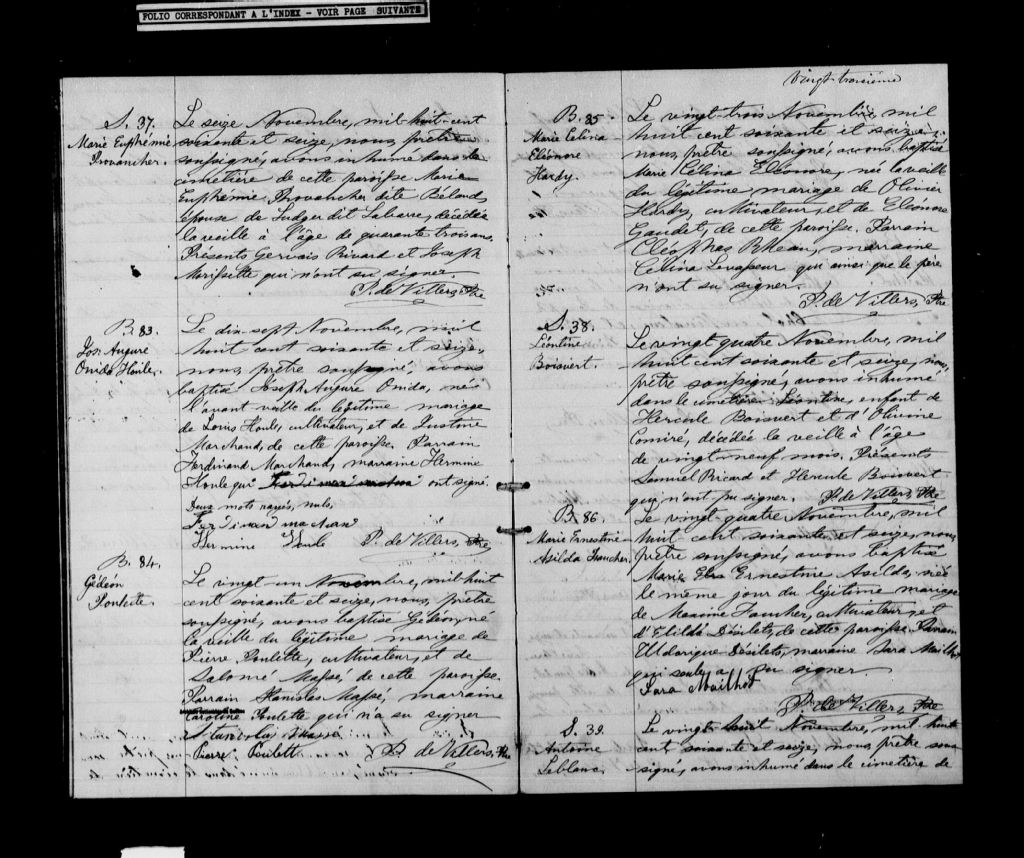 FOLIO CORRESPONDANT A L'INDEX - VOIR PAGE SUIVANTE
S. 37.
Marie Euphrémie
Provancher.
Le seize Novembre, mil-huit-cent
soixante et seize, nous, prêtre
soussigné, avons inhumé dans le
cimetière de cette paroisse Marie
Euphrémie Provancher dite Béland,
épouse de Ludger dit Labarre, décédée
la veille à l'âge de quarante trois ans.
Présents Gervais Rivard et Joseph
Morissette qui n'ont su signer.
P. de Villers, Ptre
B. 83.
Jos. Augure
Onida Houle.
Le dix-sept Novembre, mil
huit cent soixante et seize,
nous, prêtre soussigné, avons
baptisé Joseph Augure Onida, né
l'avant veille du légitime mariage
de Louis Houle, cultivateur, et de Justine
Marchand, de cette paroisse. Parrain
Ferdinand Marchand, marraine Hermine
Houle qui ont signé.
Deux mots rayés, nuls.
Hermine Houle P. de Villers, Ptre
B. 84.
Gédéon
Poulette.
Le vingt-un Novembre, mil huit
cent soixante et seize, nous, prêtre
soussigné, avons baptisé Gédéon, né
la veille du légitime mariage de
Pierre Poulette, cultivateur, et de
Salomé Massé, de cette paroisse.
Parrain Stanislas Massé, marraine
Caroline Poulette qui n'a su signer
Stanislas Massé
Pierre Poulett P. de Villers, Ptre
Vingt-troisième
B. 85.
Marie Celina
Eléonore
Hardy.
Le vingt-trois Novembre mil
huit cent soixante et seize,
nous, prêtre soussigné, avons baptisé
Marie Célina Eléonore, née la veille
du légitime mariage de Olivier
Hardy, cultivateur, et de Eléonore
Gaudet, de cette paroisse. Parrain
Cléophas Rheau, marraine
Célina Levasseur qui ainsi que le père
n'ont su signer.
P. de Villers, Ptre
S. 38.
Léontine
Boisvert.
Le vingt quatre Novembre, mil
huit cent soixante et seize, nous,
prêtre soussigné, avons inhumé
dans le cimetière Léontine, enfant de
Hercule Boisvert et d'Olivine
Comire, décédée la veille à l'âge
de vingt-neuf mois. Présents
Samuel Ricard et Hercule Boisvert
qui n'ont pu signer. P. de Villers, Ptre
B. 86.
Marie Ernestine
Asilda Faucher.
Le vingt quatre Novembre, mil
huit cent soixante et seize, nous,
prêtre soussigné, avons baptisé
Marie Elza Ernestine Asilda, née
le même jour du légitime mariage
de Maxime Faucher, cultivateur, et
d'Elilda Désilets, de cette paroisse. Parrain
Uldorique Désilets, marraine Sara Mailhot
qui seule a pu signer.
Sara Mailhot
P. de Villers, Ptre
S. 39.
Antoine
Leblanc.
Le vingt-huit Novembre, mil huit
cent soixante et seize, nous prêtre sous
signé, avons inhumé dans le cimetière de